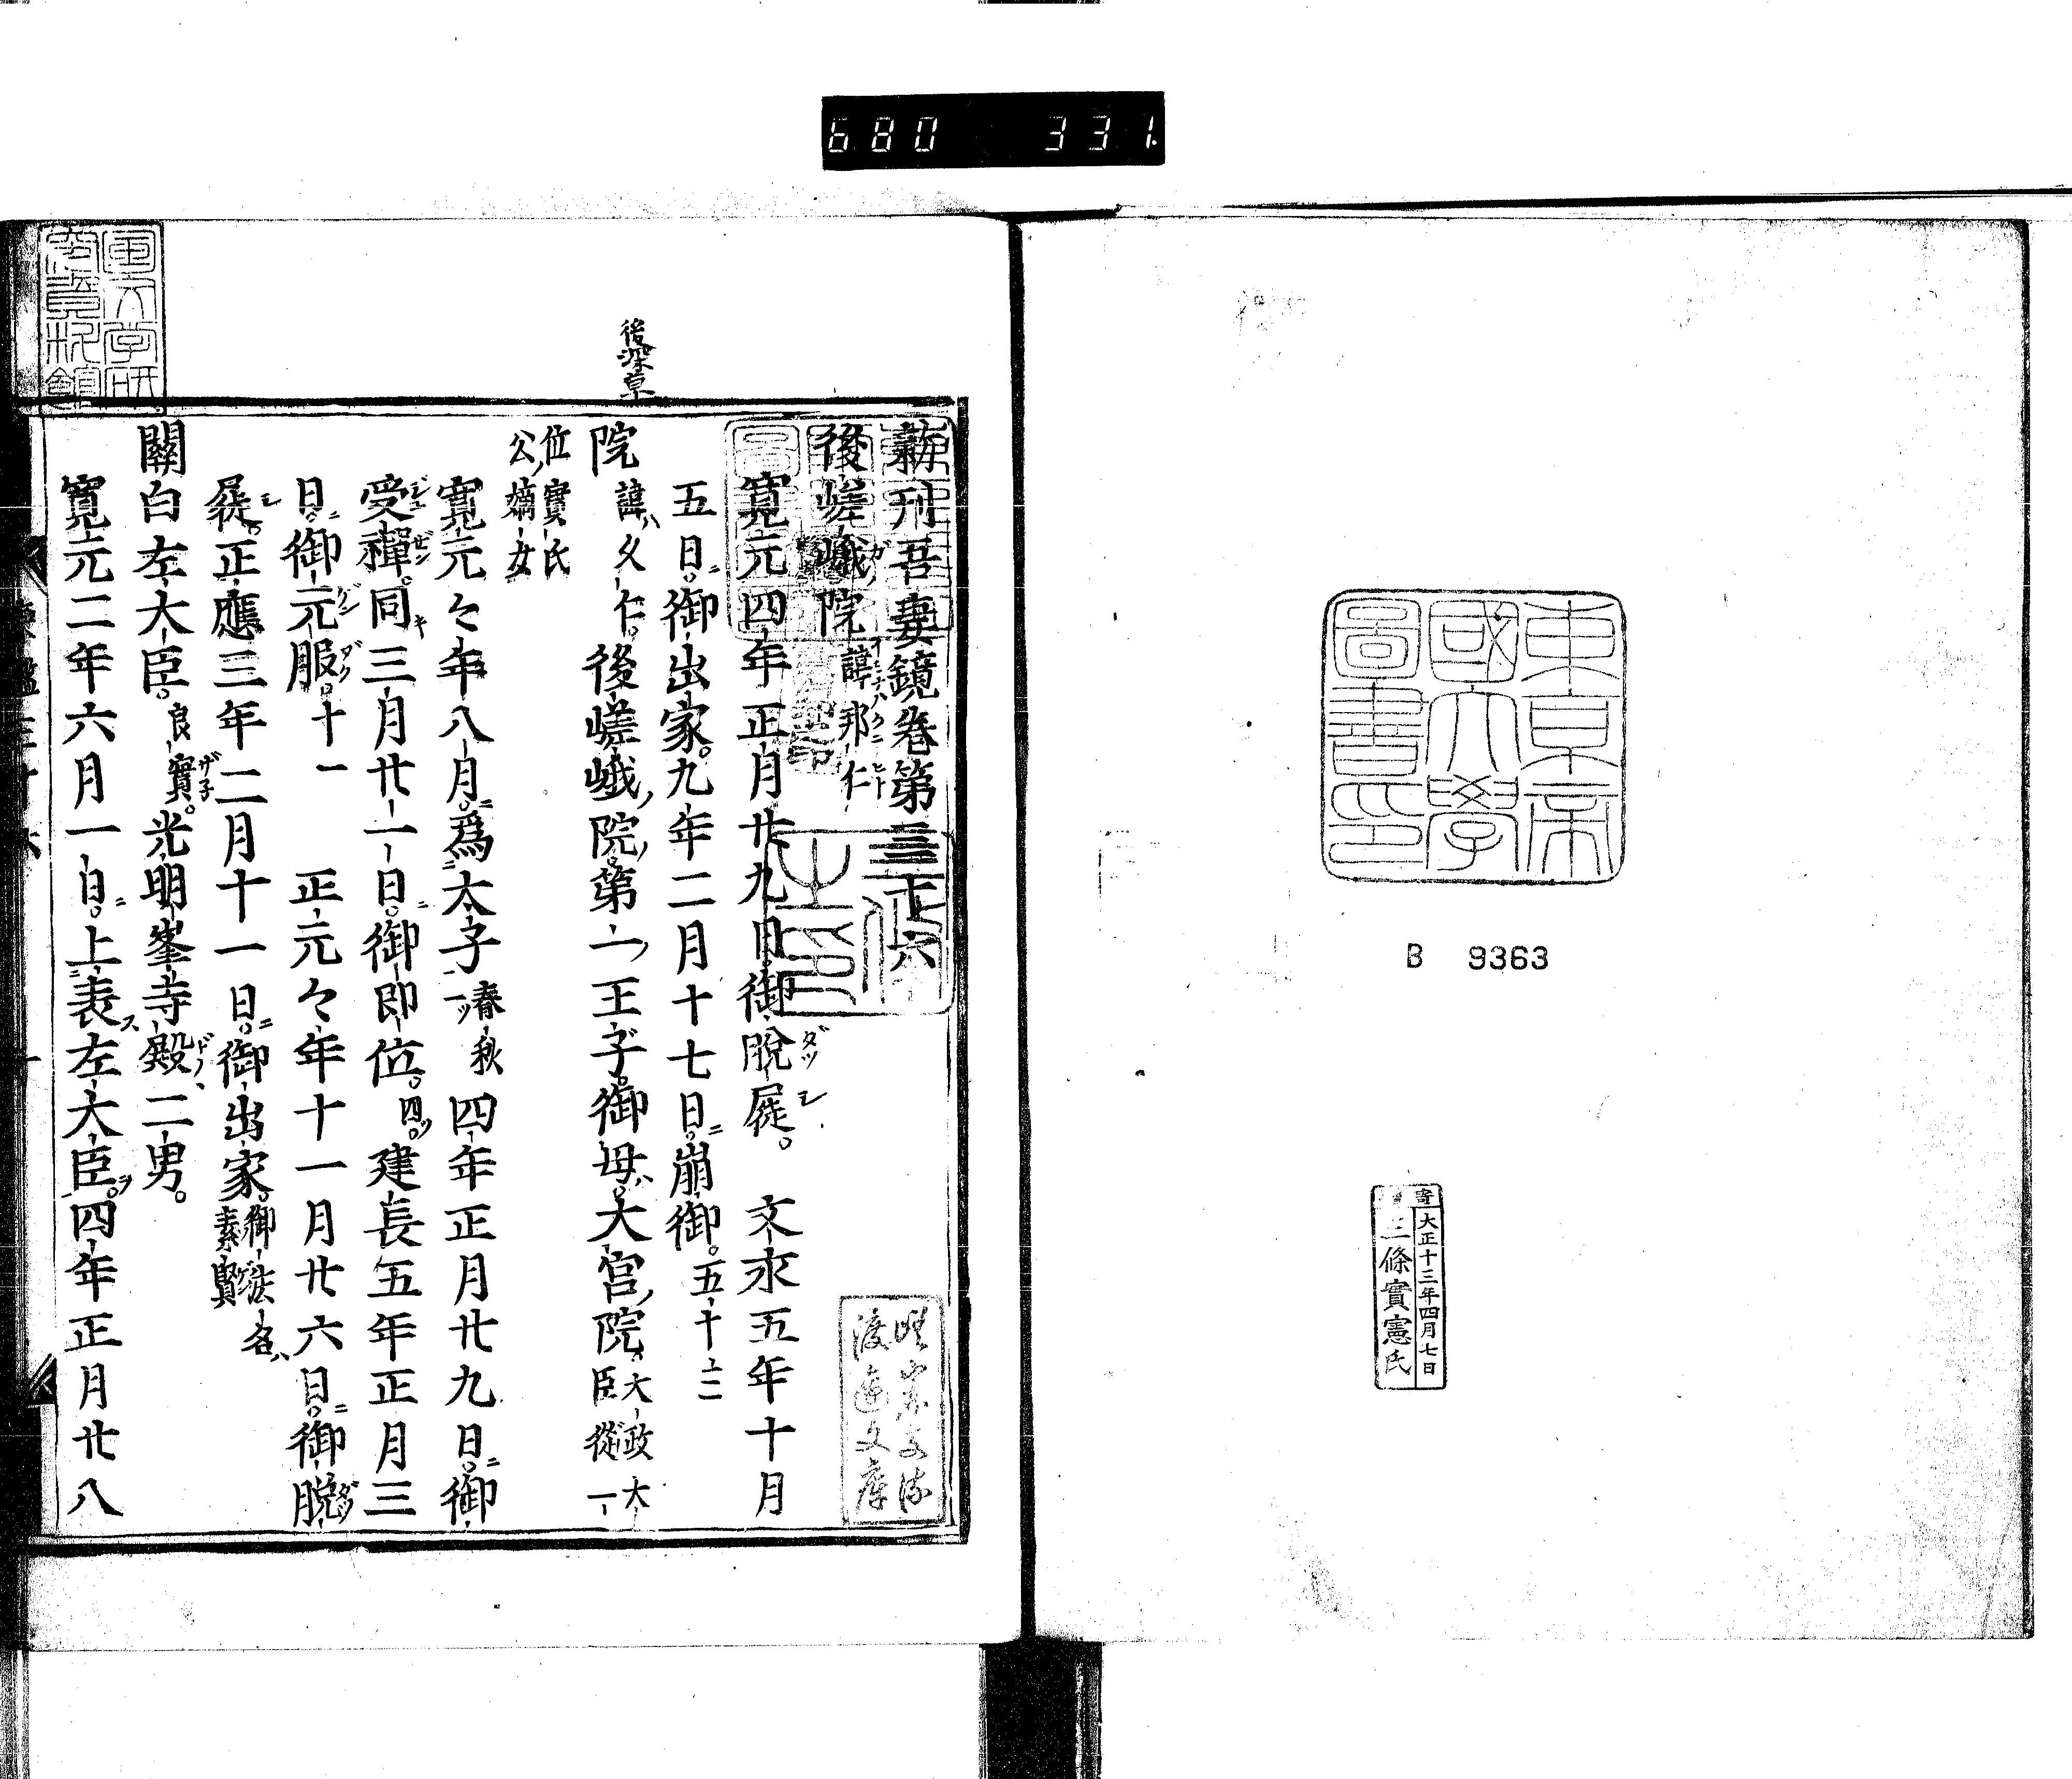 680 331.
東京帝
國大學
圖書印
B 9363
寄
大正十三年四月七日
三條實憲氏
新刊吾妻鏡卷第三十六
後嵯峨院 諱邦仁
寛元四年正月廿九日御脱屣。 文永五年十月
五日。御出家。九年二月十七日。崩御。五十二
後深草
院 諱久仁。後嵯峨院第一王子。御母大宮院。大政大臣從一
位實氏公嫡女
寛元々年八月。爲太子 春秋一ツ 四年正月廿九日。御
受禪。同三月廿一日。御即位。四。建長五年正月三
日。御元服。十一 正元々年十一月廿六日。御脱
屣。正應三年二月十一日。御出家。御法名素實
關白左大臣。良實。光明峯寺殿二男。
寛元二年六月一日。上表左大臣。四年正月廿八
渡邊文庫